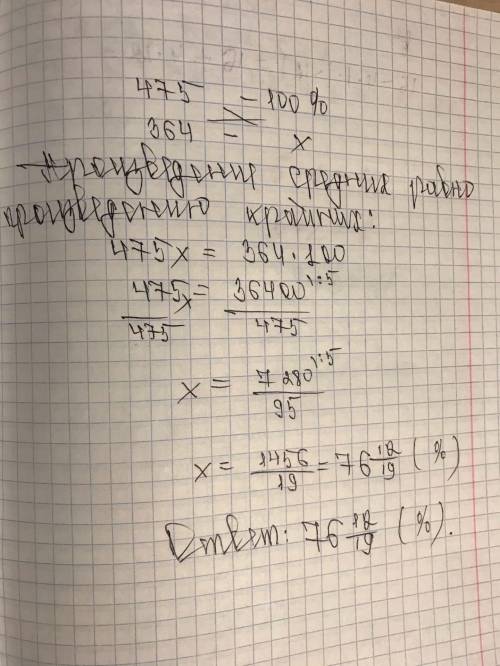 475 – 100 %
364 – x
Произведение средних равно
произведению крайних:
475x = 364 · 100
475x/475 = 36400/475 ∖:5
x = 7280/95 ∖:5
x = 1456/19 = 76 12/19 (%)
Ответ: 76 12/19 (%).